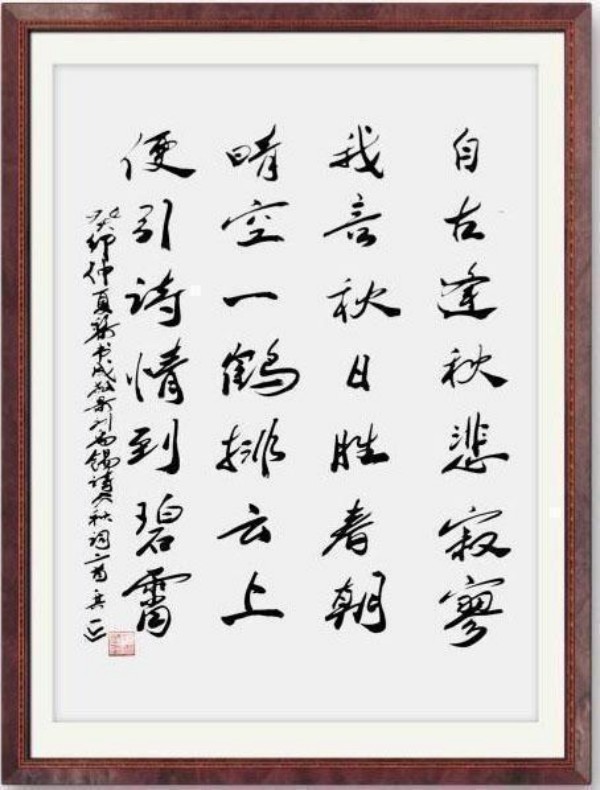 自古逢秋悲寂寥
我言秋日胜春朝
晴空一鹤排云上
便引诗情到碧霄
癸卯仲夏书刘禹锡诗秋词二首